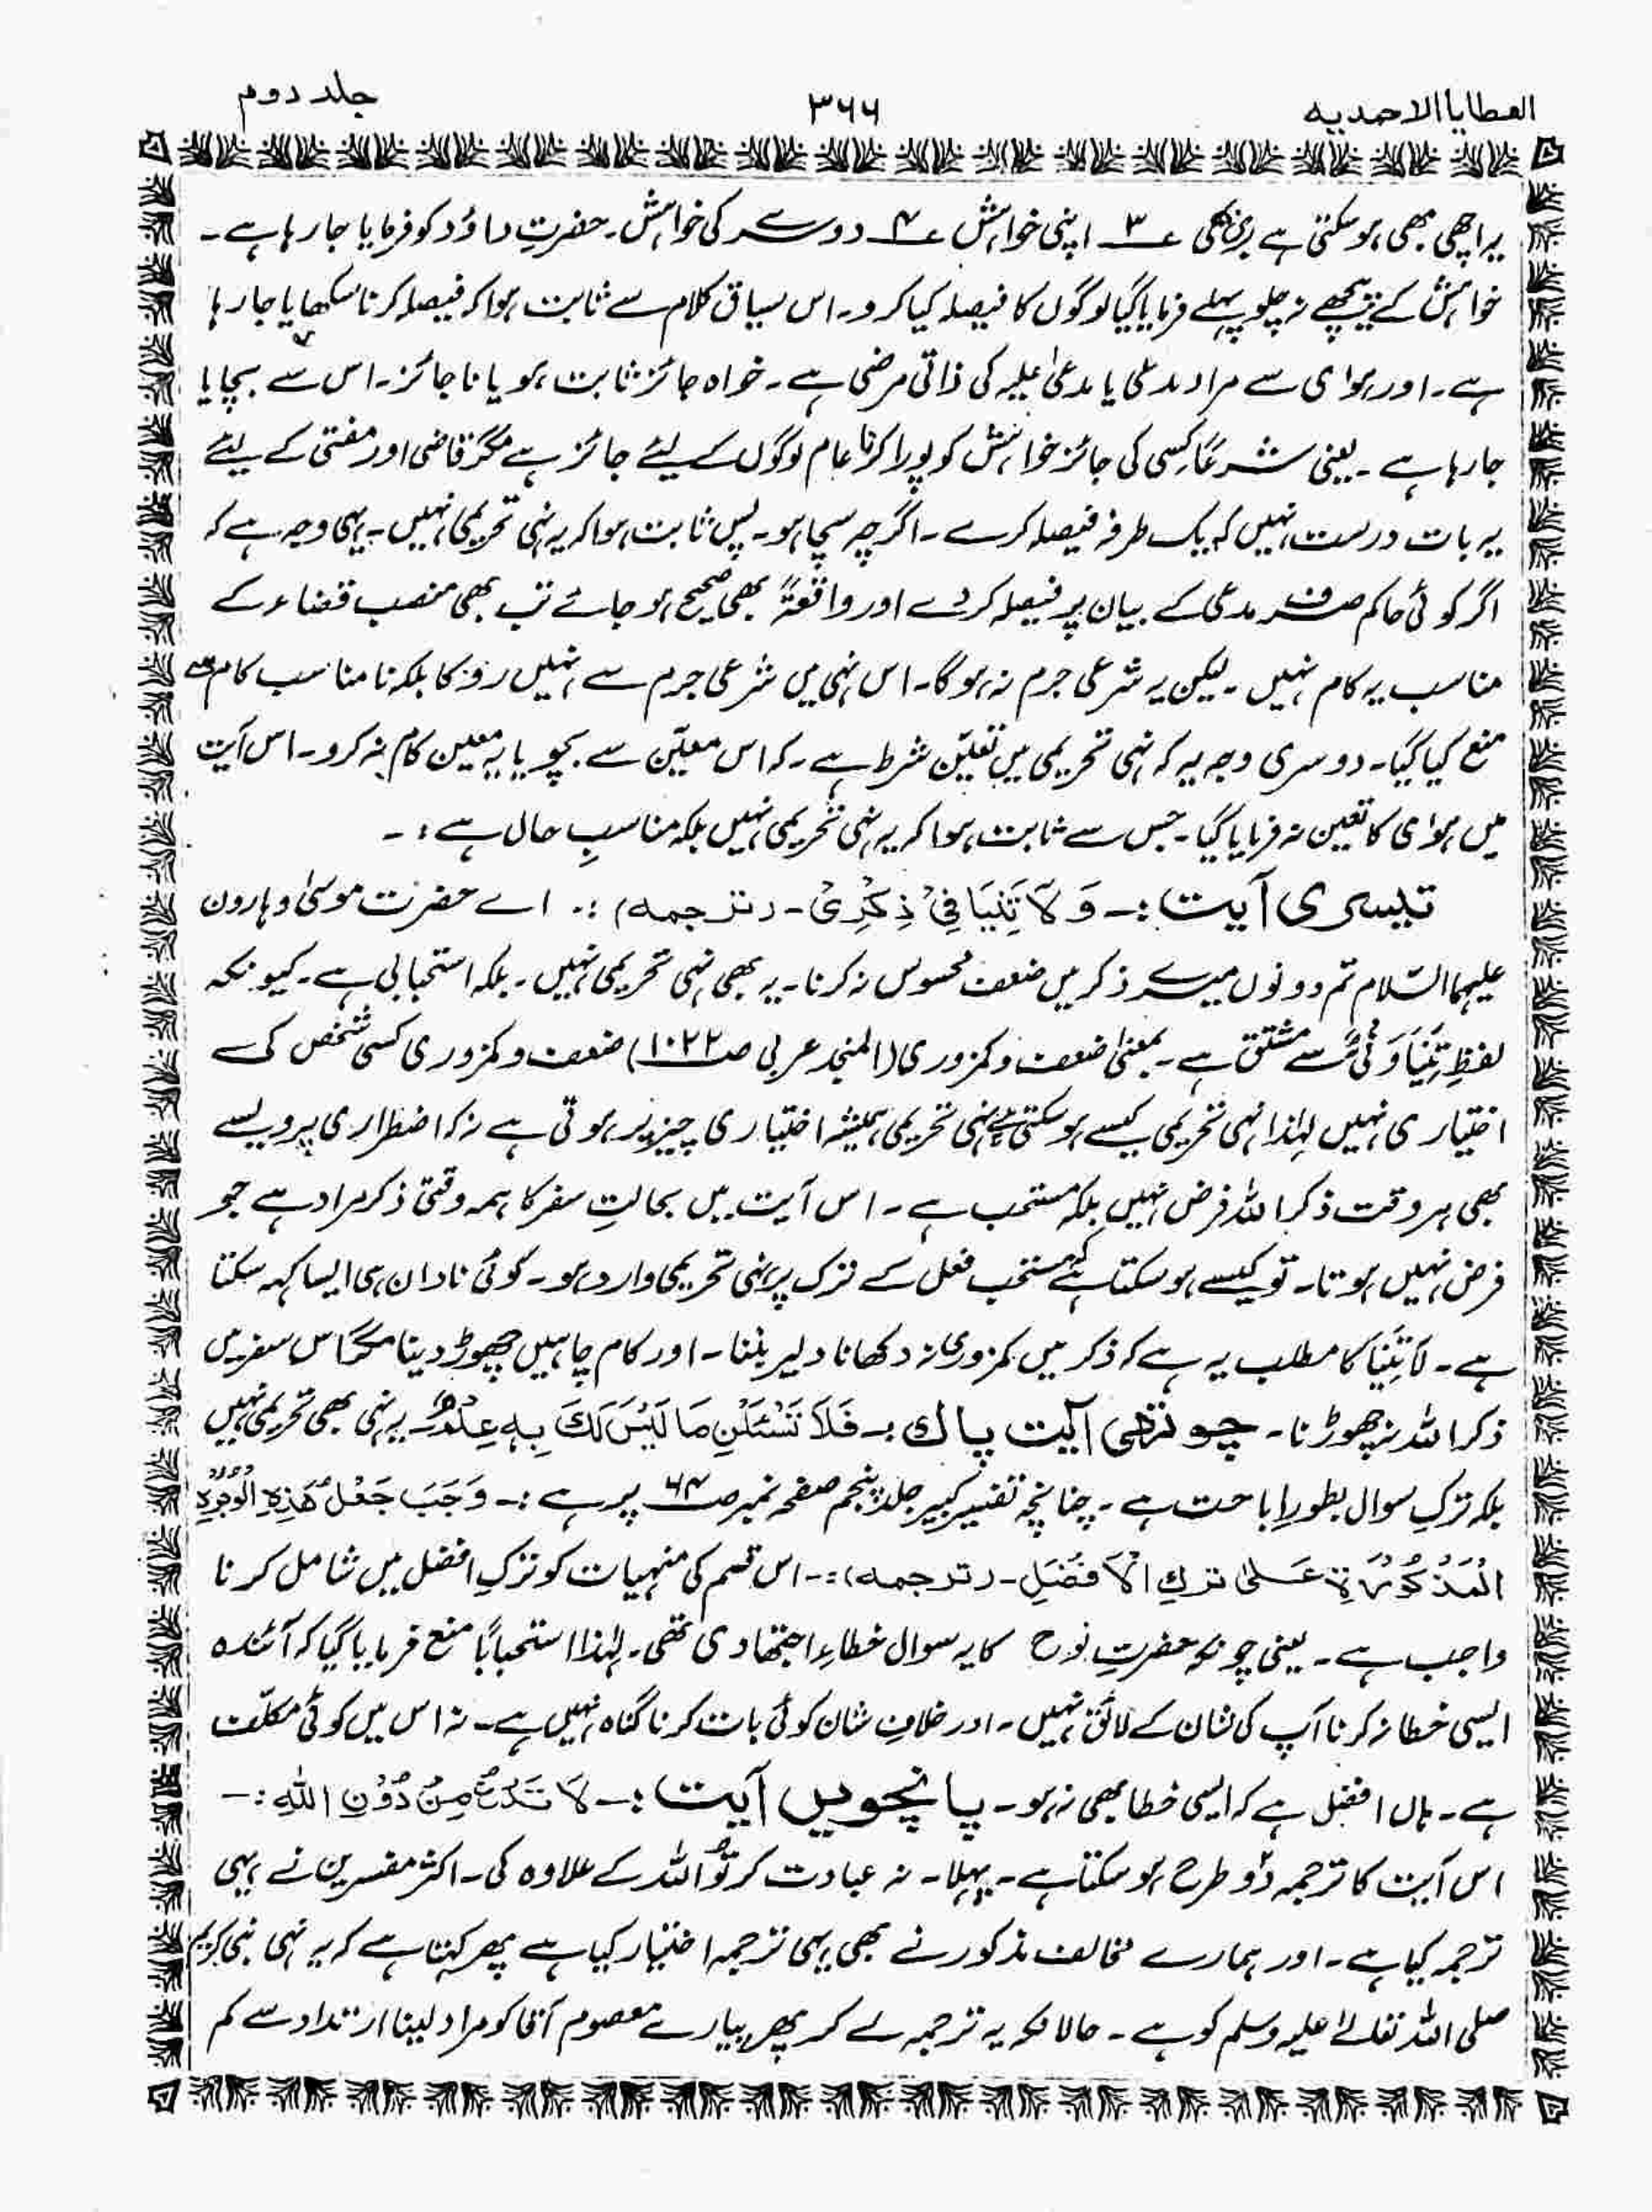 العطایا الاحمدیه
۳۶۶
جلد دوم
یہ اچھی بھی ہو سکتی ہے بری بھی ۳؎ اپنی خواہش ۴؎ دوسرے کی خواہش۔ حضرتِ داؤد کو فرمایا جا رہا ہے۔
خواہش کے پیچھے نہ چلو پہلے فرمایا گیا لوگوں کا فیصلہ کیا کرو۔ اس سیاق کلام سے ثابت ہوا کہ فیصلہ کرنا سکھایا جا رہا
ہے۔ اور ہوای سے مراد مدعی یا مدعیٰ علیہ کی ذاتی مرضی ہے۔ خواہ جائز ثابت ہو یا ناجائز۔ اس سے بچایا
جا رہا ہے۔ یعنی شرعًا کسی کی جائز خواہش کو پورا کرنا عام لوگوں کے لیئے جائز ہے مگر قاضی اور مفتی کے لیئے
یہ بات درست نہیں کہ یک طرفہ فیصلہ کرے۔ اگرچہ سچا ہو۔ پس ثابت ہوا کہ یہ نہی تحریمی نہیں۔ یہی وجہ ہے کہ
اگر کوئی حاکم صرف مدعی کے بیان پر فیصلہ کر دے اور واقعۃً بھی صحیح ہو جائے تب بھی منصب قضاء کے
مناسب یہ کام نہیں۔ لیکن یہ شرعی جرم نہ ہوگا۔ اس نہی میں شرعی جرم سے نہیں روکا بلکہ نا مناسب کام سے
منع کیا گیا۔ دوسری وجہ یہ کہ نہی تحریمی میں تعیّن شرط ہے۔ کہ اس معیّن سے بچو یا یہ معین کام نہ کرو۔ اس آیت
میں ہوای کا تعین نہ فرمایا گیا۔ جس سے ثابت ہوا کہ یہ نہی تحریمی نہیں بلکہ مناسبِ حال ہے :۔
تیسری آیت :۔ وَلَا تَنِیَا فِیْ ذِکْرِیْ۔ (ترجمہ) :۔ اے حضرت موسیٰ و ہارون
علیہما السّلام تم دونوں میرے ذکر میں ضعف محسوس نہ کرنا۔ یہ بھی نہی تحریمی نہیں۔ بلکہ استحبابی ہے۔ کیونکہ
لفظِ تَنِیَا وَنْیٌ سے مشتق ہے۔ بمعنیٰ ضعف و کمزوری (المنجد عربی صـ۱۰۲۲) ضعف و کمزوری کسی شخص کی
اختیاری نہیں لہٰذا نہی تحریمی کیسے ہو سکتی ہے نہی تحریمی ہمیشہ اختیاری چیز پر ہوتی ہے نہ کہ اضطراری پر ویسے
بھی ہر وقت ذکر اللہ فرض نہیں بلکہ مستحب ہے۔ اس آیت میں بحالتِ سفر کا ہمہ وقتی ذکر مراد ہے جو
فرض نہیں ہوتا۔ تو کیسے ہو سکتا ہے کہ مستحب فعل کے ترک پر نہی تحریمی وارد ہو۔ کوئی نادان ہی ایسا کہہ سکتا
ہے۔ لَا تَنِیَا کا مطلب یہ ہے کہ ذکر میں کمزوری نہ دکھانا دلیر بننا۔ اور کام چاہیں چھوڑ دینا مگر اس سفر میں
ذکر اللہ نہ چھوڑنا۔ چوتھی آیت پاک :۔ فَلَا تَسْئَلْنِ مَا لَیْسَ لَکَ بِہٖ عِلْمٌ۔ یہ نہی بھی تحریمی نہیں
بلکہ ترکِ سوال بطورِ اباحت ہے۔ چنانچہ تفسیر کبیر جلد پنجم صفحہ نمبر صـ۶۴ پر ہے :۔ وَجَبَ جَعْلُ ھٰذِہِ الْوُجُوْہِ
الْمَذْکُوْرَۃِ عَلٰی تَرْکِ الْاَفْضَلِ۔ (ترجمہ) :۔ اس قسم کی منہیات کو ترکِ افضل میں شامل کرنا
واجب ہے۔ یعنی چونکہ حضرتِ نوح کا یہ سوال خطاءِ اجتھادی تھی۔ لہٰذا استحبابًا منع فرمایا گیا کہ آئندہ
ایسی خطا نہ کرنا آپ کی شان کے لائق نہیں۔ اور خلافِ شان کوئی بات کرنا گناہ نہیں ہے۔ نہ اس میں کوئی مکلّف
ہے۔ ہاں افضل ہے کہ ایسی خطا بھی نہ ہو۔ پانچویں آیت :۔ لَا تَدْعُ مِنْ دُوْنِ اللّٰہِ :۔
اس آیت کا ترجمہ دو طرح ہو سکتا ہے۔ پہلا۔ نہ عبادت کر تُو اللہ کے علاوہ کی۔ اکثر مفسرین نے یہی
ترجمہ کیا ہے۔ اور ہمارے مخالف مذکور نے بھی یہی ترجمہ اختیار کیا ہے پھر کہتا ہے کہ یہ نہی نبی کریم
صلی اللہ تعالےٰ علیہ وسلم کو ہے۔ حالانکہ یہ ترجمہ لے کر پھر پیارے معصوم آقا کو مراد لینا ارتداد سے کم